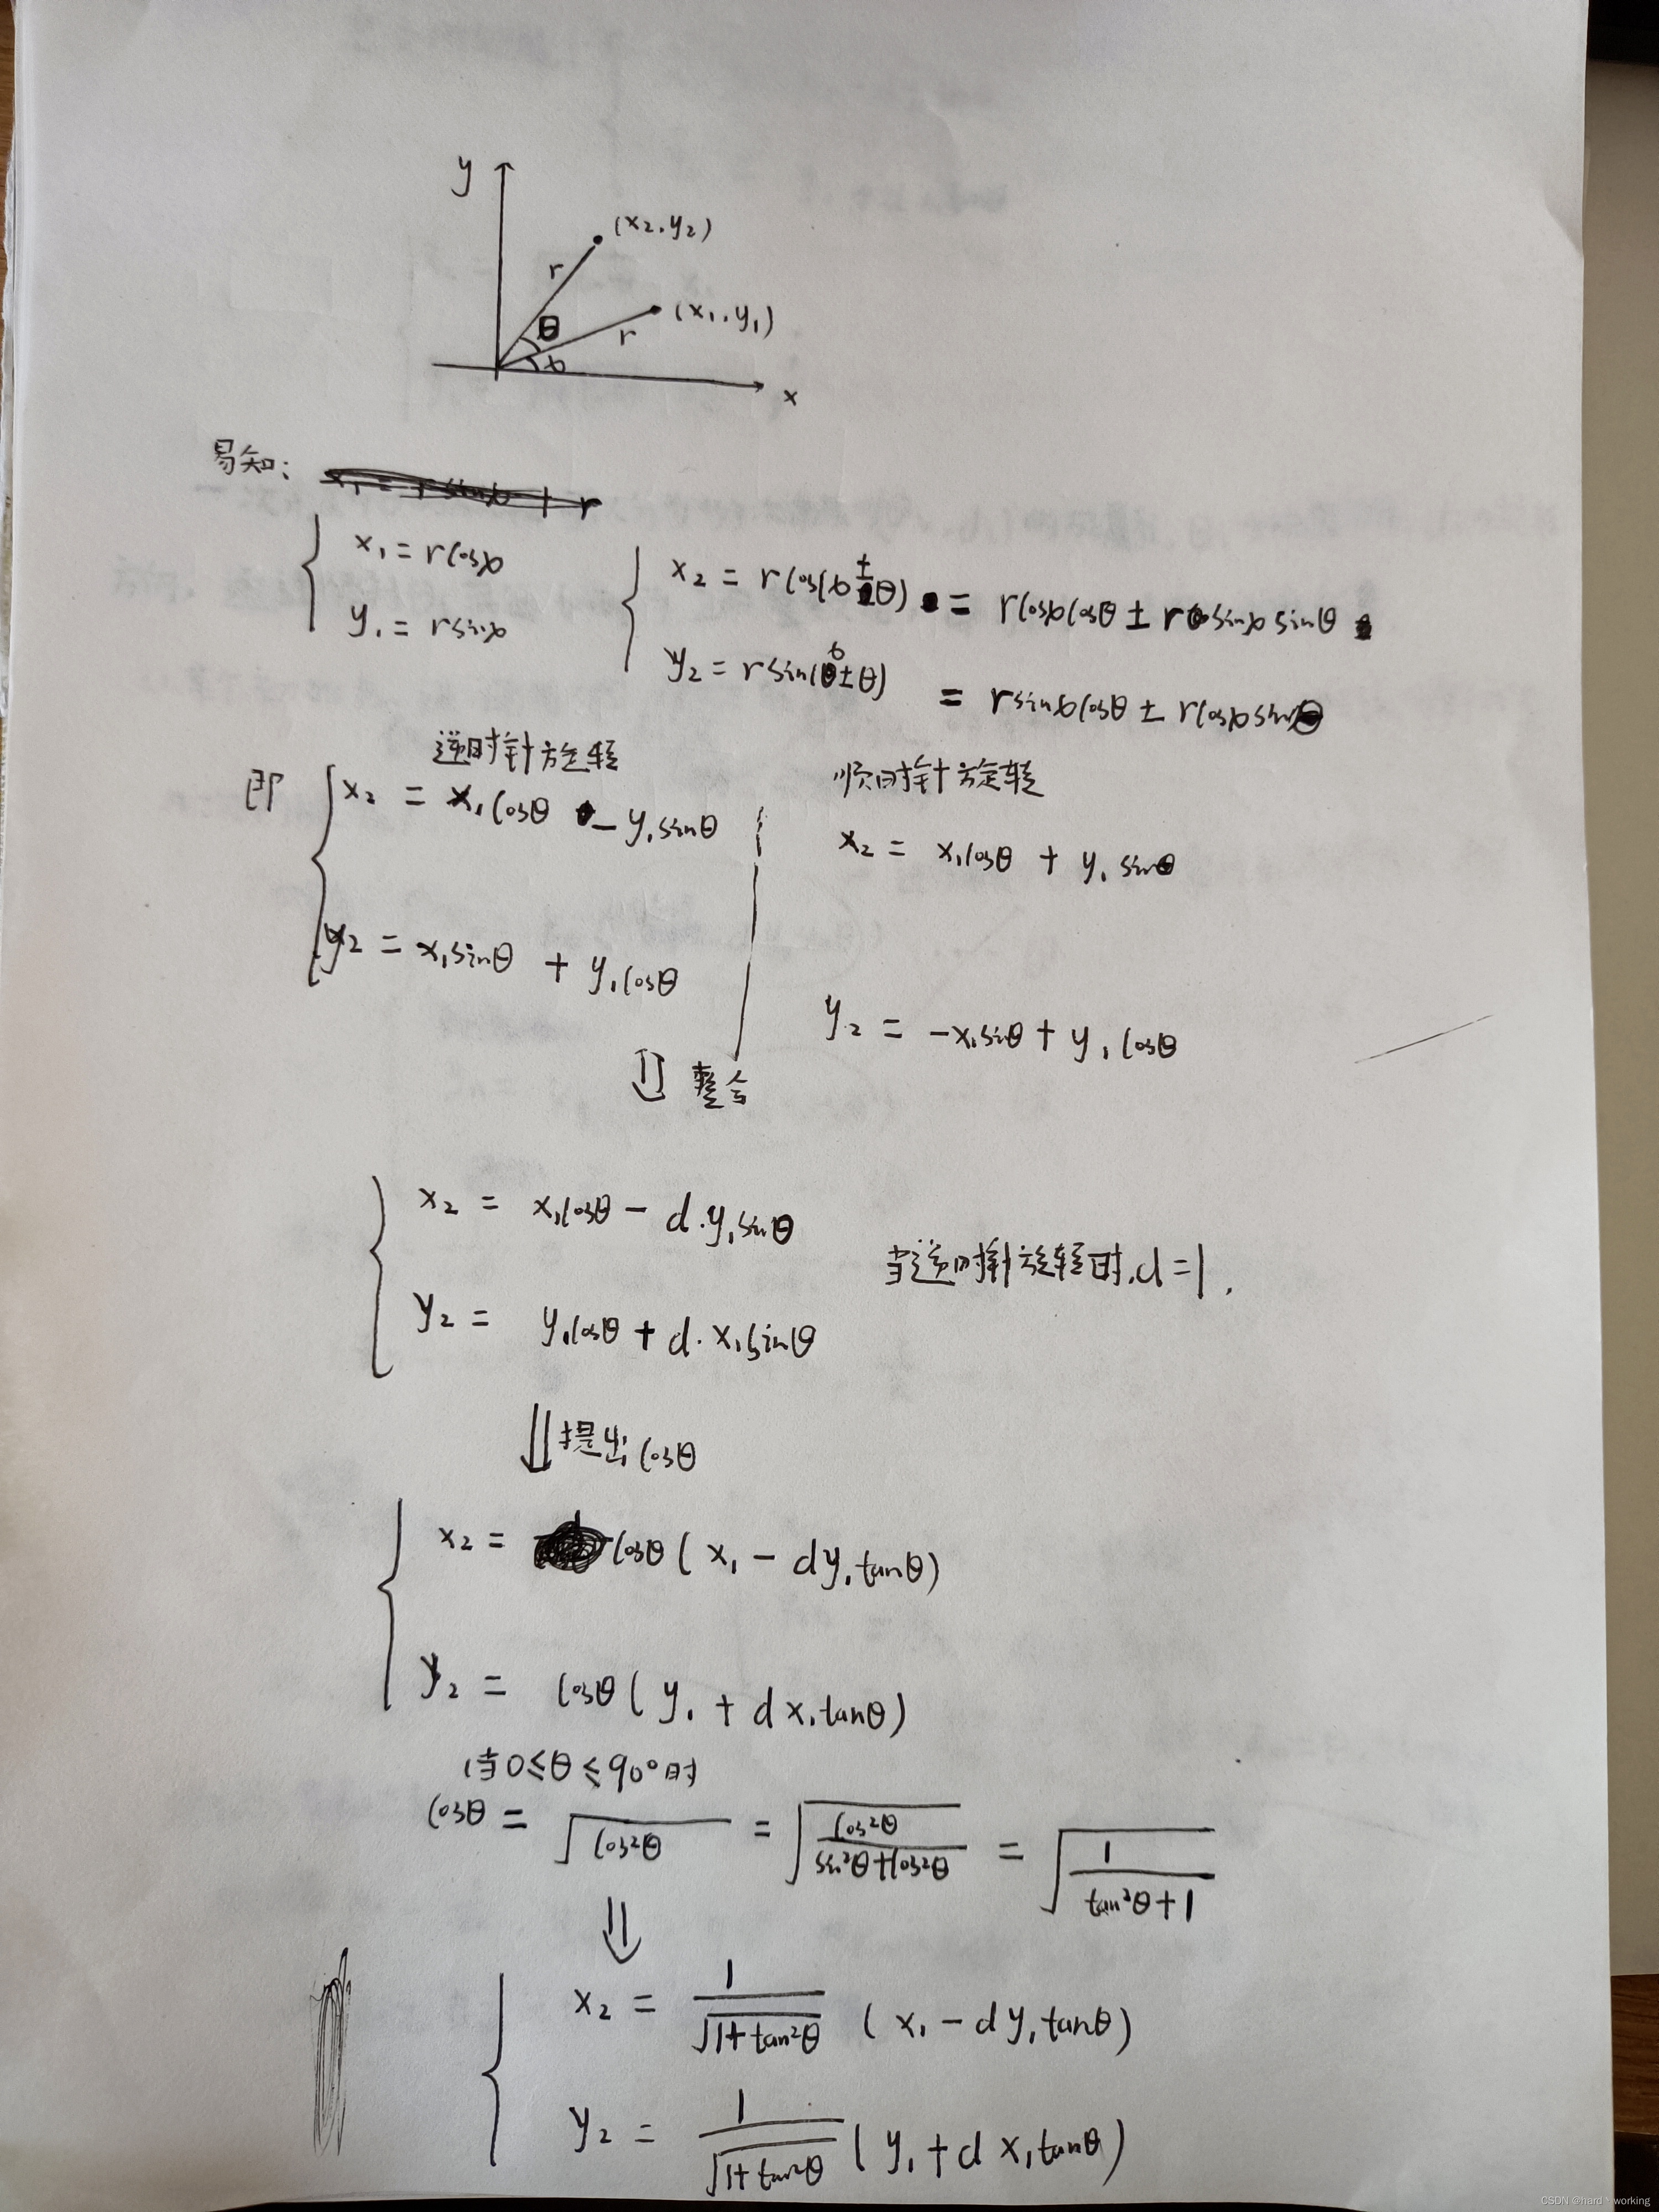 y
(x₂,y₂)
r
θ
(x₁,y₁)
r
x
易知:
{ x₁ = rcosb
y₁ = rsinb
{ x₂ = rcos(b±θ) = rcosbcosθ ± rsinbsinθ
y₂ = rsin(b±θ) = rsinbcosθ ± rcosbsinθ
逆时针旋转
顺时针旋转
即 { x₂ = x₁cosθ - y₁sinθ
x₂ = x₁cosθ + y₁sinθ
y₂ = x₁sinθ + y₁cosθ
y₂ = -x₁sinθ + y₁cosθ
⇓ 整合
{ x₂ = x₁cosθ - d·y₁sinθ
当逆时针旋转时,d=1.
y₂ = y₁cosθ + d·x₁sinθ
⇓ 提出cosθ
{ x₂ = cosθ(x₁ - dy₁tanθ)
y₂ = cosθ(y₁ + dx₁tanθ)
当0≤θ≤90°时
cosθ = √(cos²θ) = √(cos²θ/(sin²θ+cos²θ)) = √(1/(tan²θ+1))
⇓
{ x₂ = 1/√(1+tan²θ) (x₁ - dy₁tanθ)
y₂ = 1/√(1+tan²θ) (y₁ + dx₁tanθ)
CSDN @hard丶working